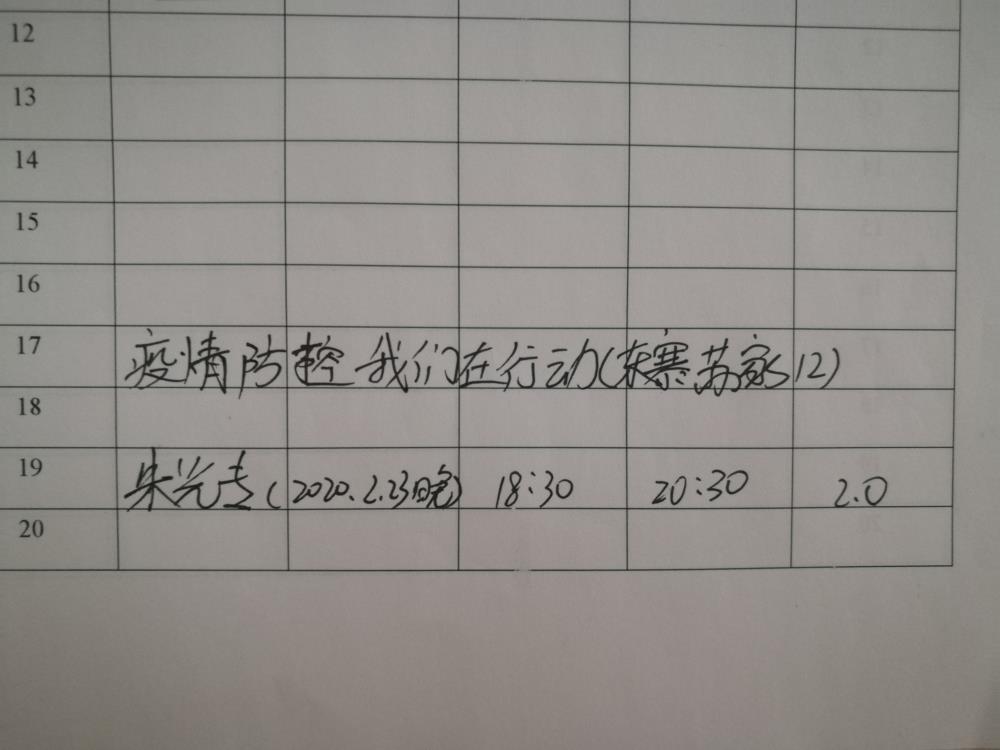 12
13
14
15
16
17 疫情防控我们在行动(东寨苏家12)
18
19 朱光专(2020.2.23晚) 18:30 20:30 2.0
20